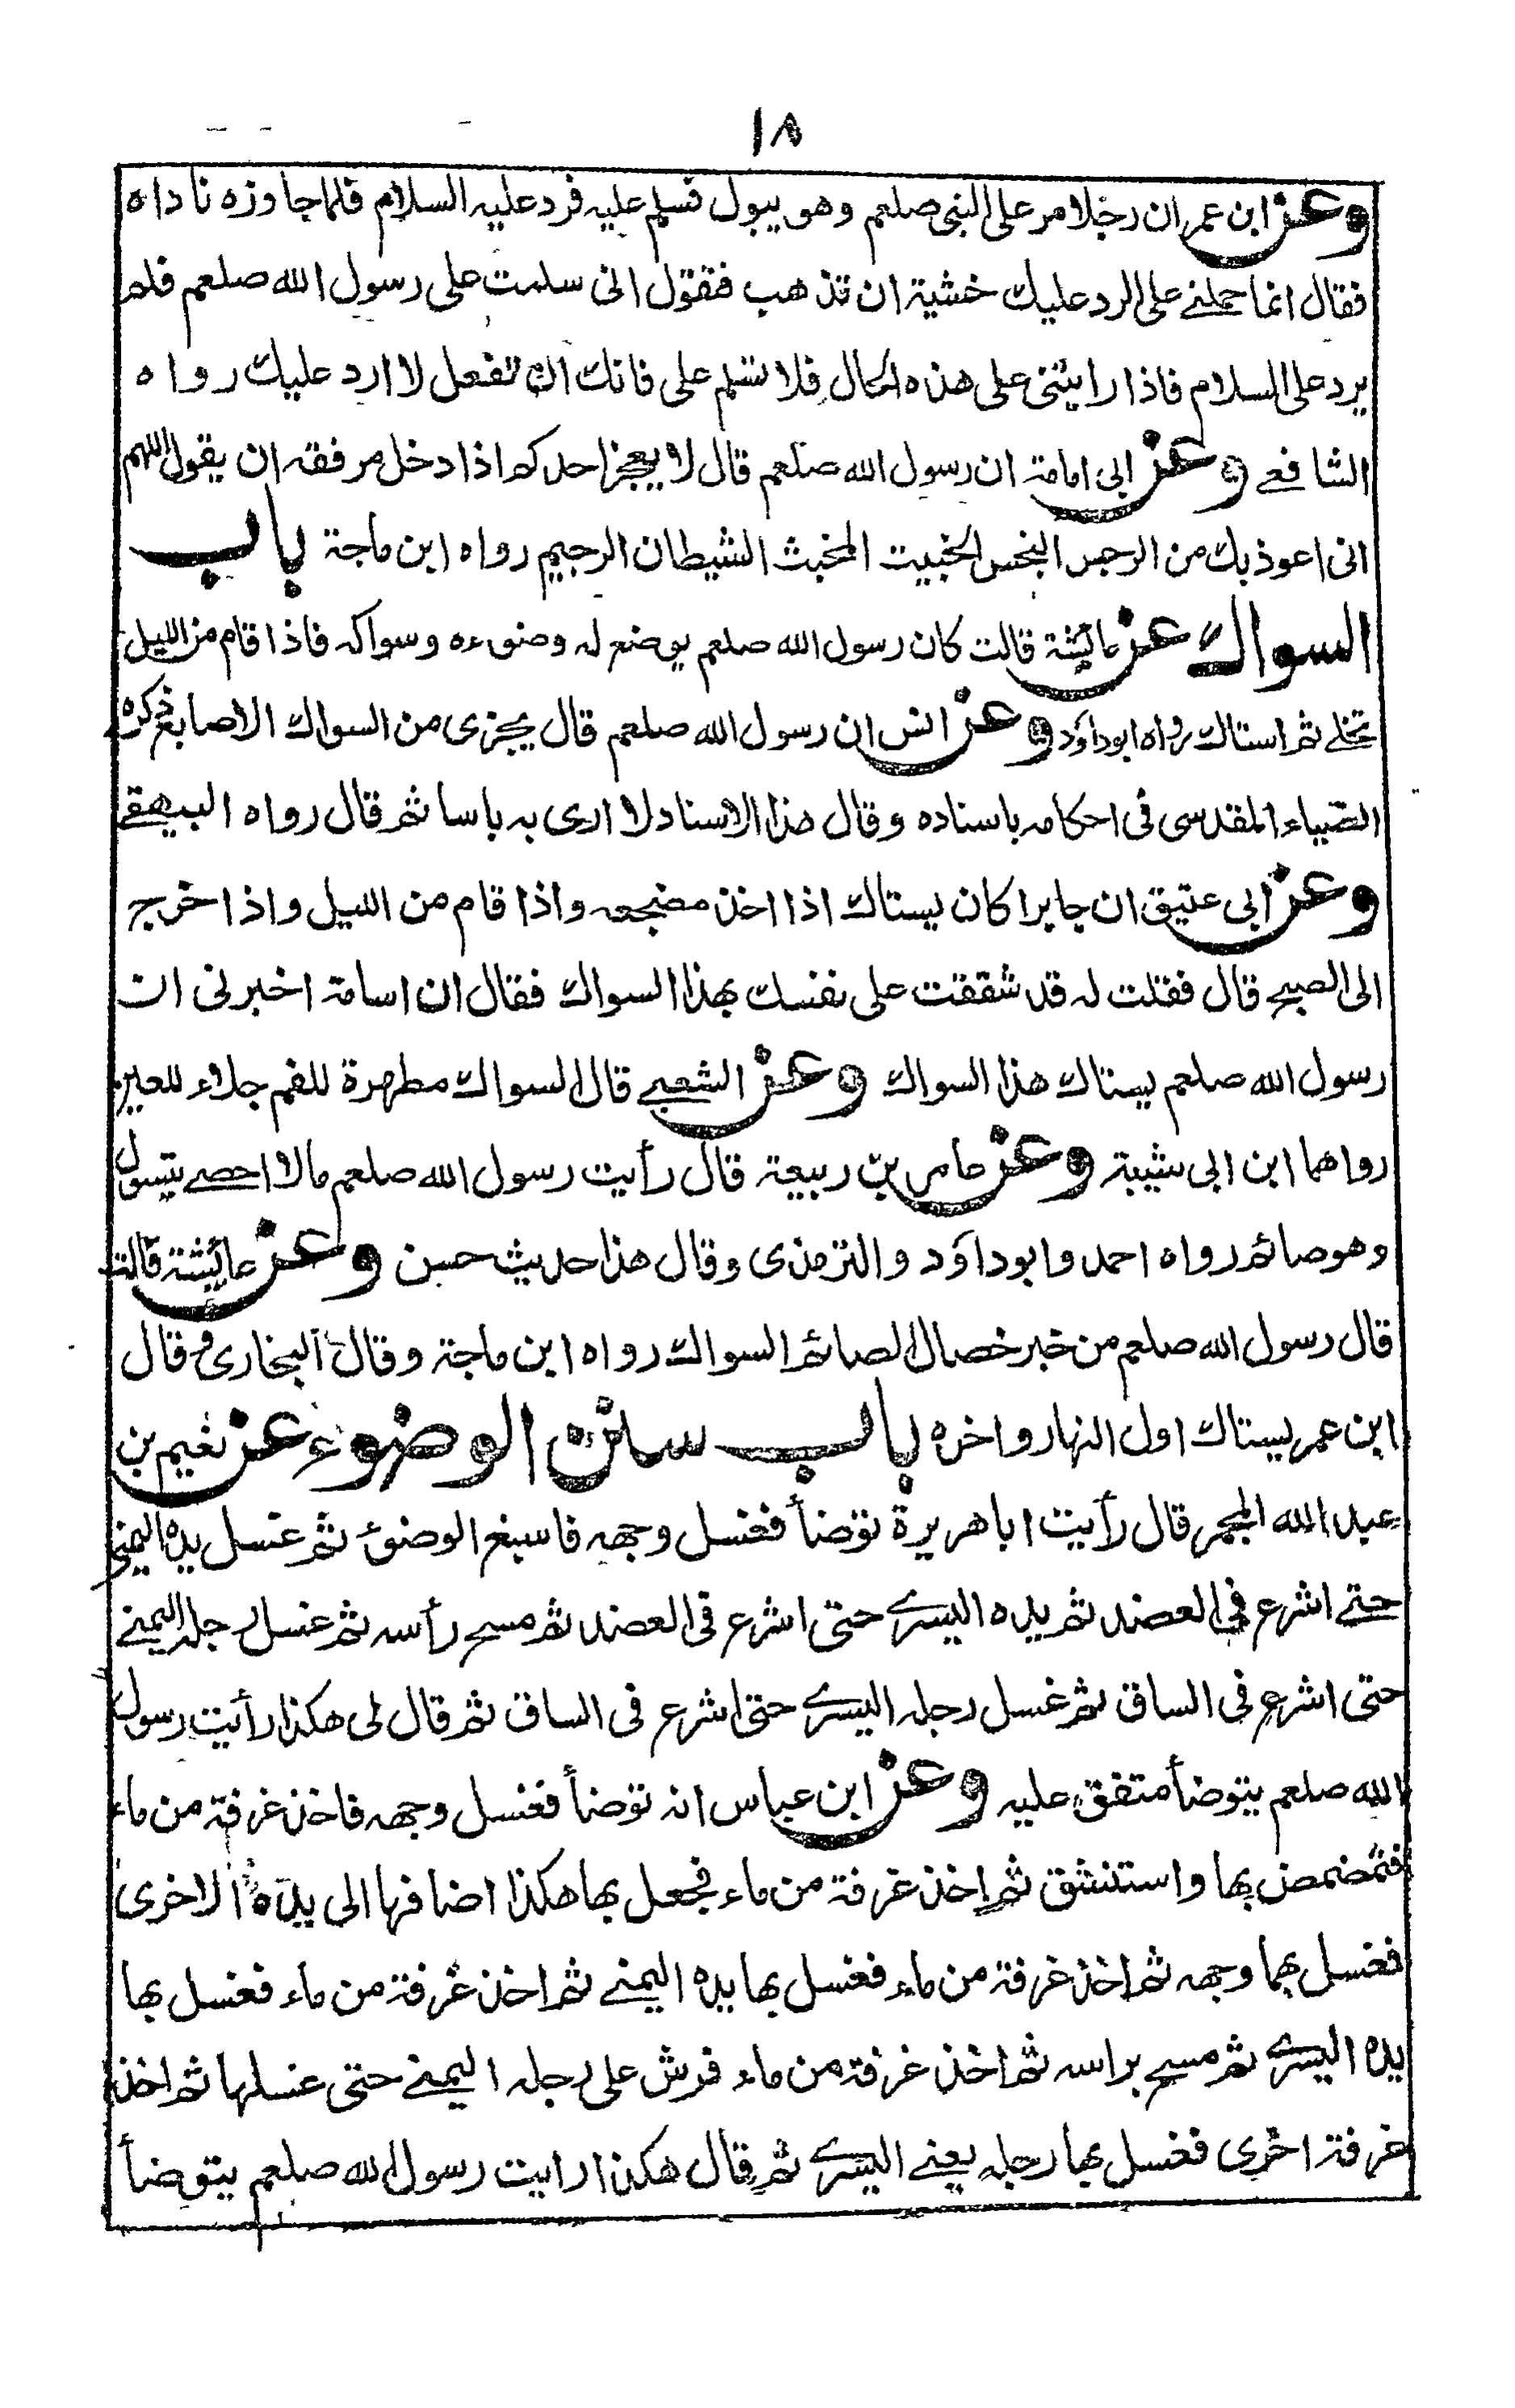 ١٨
وعن ابن عمر ان رجلا مر على النبى صلعم وهو يبول فسلم عليه فرد عليه السلام فلما جاوزه ناداه
فقال انما حملنے على الرد عليك خشية ان تذهب فتقول انى سلمت على رسول الله صلعم فلم
يرد على السلام فاذا رايتنى على هذه الحال فلا تسلم على فانك ان تفعل لا ارد عليك رواه
الشافعے وعن ابى امامة ان رسول الله صلعم قال لا يعجز احدكم اذا دخل مرفقه ان يقول اللهم
انى اعوذ بك من الرجس النجس الخبيث المخبث الشيطان الرجيم رواه ابن ماجة باب
السواك عن عائشة قالت كان رسول الله صلعم يوضع له وضوءه وسواكه فاذا قام من الليل
تخلے ثم استاك رواه ابوداؤد وعن انس ان رسول الله صلعم قال يجزى من السواك الاصابع ذكره
الضياء المقدسى فى احكامه باسناده وقال هذا الاسناد لا ارى به باسا ثم قال رواه البيهقے
وعن ابى عتيق ان جابرا كان يستاك اذا اخذ مضجعه واذا قام من الليل واذا خرج
الى الصبح قال فقلت له قد شققت على نفسك بهذا السواك فقال ان اسامة اخبرنى ان
رسول الله صلعم يستاك هذا السواك وعن الشعبے قال السواك مطهرة للفم جلاء للعين
رواهما ابن ابى شيبة وعن عامر بن ربيعة قال رأيت رسول الله صلعم مالا احصے يتسوك
وهو صائم رواه احمد وابوداؤد والترمذى وقال هذا حديث حسن وعن عائشة قالت
قال رسول الله صلعم من خير خصال الصائم السواك رواه ابن ماجة وقال البخارى وقال
ابن عمر يستاك اول النهار واخره باب سنن الوضوء عن نعيم بن
عبد الله المجمر قال رأيت اباهريرة توضأ فغسل وجهه فاسبغ الوضوئ ثم غسل يده اليمنى
حتے اشرع فى العضد ثم يده اليسرے حتى اشرع فى العضد ثم مسح رأسه ثم غسل رجله اليمنے
حتى اشرع فى الساق ثم غسل رجله اليسرے حتى اشرع فى الساق ثم قال لى هكذا رأيت رسول
الله صلعم يتوضأ متفق عليه وعن ابن عباس انه توضأ فغسل وجهه فاخذ غرفة من ماء
فتمضمض بها واستنشق ثم اخذ غرفة من ماء فجعل بها هكذا اضافها الى يده الاخرى
فغسل بهما وجهه ثم اخذ غرفة من ماء فغسل بها يده اليمنے ثم اخذ غرفة من ماء فغسل بها
يده اليسرے ثم مسح براسه ثم اخذ غرفة من ماء فرش على رجله اليمنے حتى غسلها ثم اخذ
غرفة اخرى فغسل بها رجله يعنے اليسرے ثم قال هكذا رايت رسول الله صلعم يتوضأ